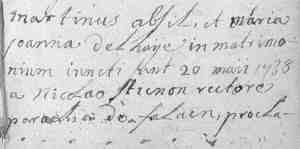 martinus absil, et maria
joanna de haye in matrimo
nium iuncti sunt 20 maii 1738
a Nicolao Stenon rectore
de falaen, procla-